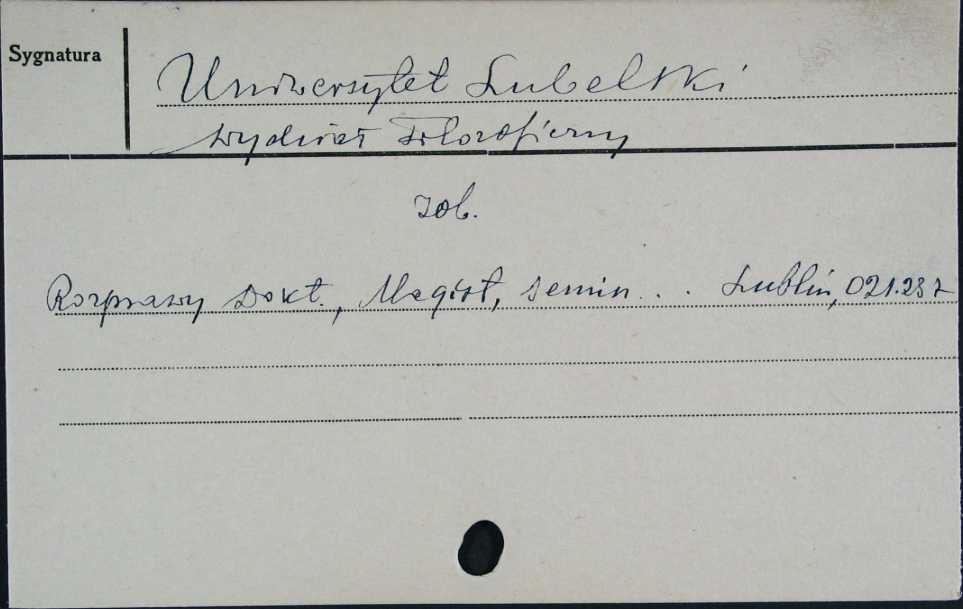 Sygnatura
Uniwersytet Lubelski
Wydział Filozoficzny
zob.
Rozprawy Dokt., Magist., Semin... Lublin, 021.237